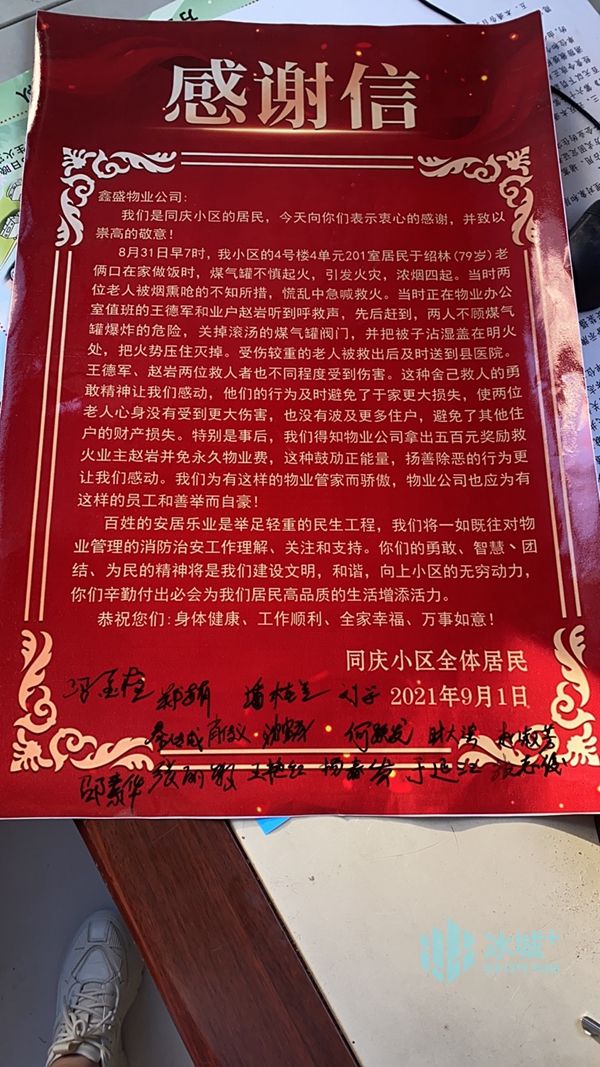 感谢信
鑫盛物业公司:
我们是同庆小区的居民，今天向你们表示衷心的感谢，并致以
崇高的敬意！
8月31日早7时，我小区的4号楼4单元201室居民于绍林(79岁)老
俩口在家做饭时，煤气罐不慎起火，引发火灾，浓烟四起。当时两
位老人被烟熏呛的不知所措，慌乱中急喊救火。当时正在物业办公
室值班的王德军和业户赵岩听到呼救声，先后赶到，两人不顾煤气
罐爆炸的危险，关掉滚汤的煤气罐阀门，并把被子沾湿盖在明火
处，把火势压住灭掉。受伤较重的老人被救出后及时送到县医院。
王德军、赵岩两位救人者也不同程度受到伤害。这种舍己救人的勇
敢精神让我们感动，他们的行为及时避免了于家更大损失，使两位
老人心身没有受到更大伤害，也没有波及更多住户，避免了其他住
户的财产损失。特别是事后，我们得知物业公司拿出五百元奖励救
火业主赵岩并免永久物业费，这种鼓劢正能量，扬善除恶的行为更
让我们感动。我们为有这样的物业管家而骄傲，物业公司也应为有
这样的员工和善举而自豪！
百姓的安居乐业是举足轻重的民生工程，我们将一如既往对物
业管理的消防治安工作理解、关注和支持。你们的勇敢、智慧丶团
结、为民的精神将是我们建设文明，和谐，向上小区的无穷动力，
你们辛勤付出必会为我们居民高品质的生活增添活力。
恭祝您们:身体健康、工作顺利、全家幸福、万事如意！
同庆小区全体居民
2021年9月1日
张丽敏 王艳红 杨春发 于延江 张志俄
冰城+